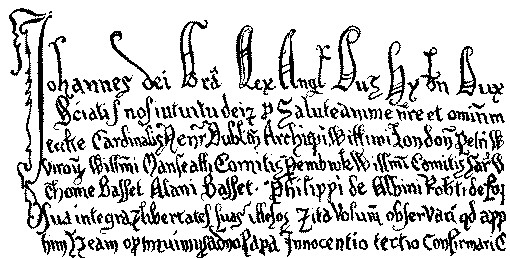 Johannes dei Grā Rex Angł Dux Hybn Dux
Sciatis nos intuitu dei et p Salute anime nre et omniūm
ecctie Cardinalis Henr Dublin Archiepi Willimi London Petri W
Willimi Mariscalli Comitis Pembrok Willimi Comitis Sar W
Thome Basset Alani Basset Philippi de Albini Robti de Rop
Sua integra et libertates suas illesas et ita volum observari qd app
eam optinuimus a dno Papa Innocentio tertio Confirmari